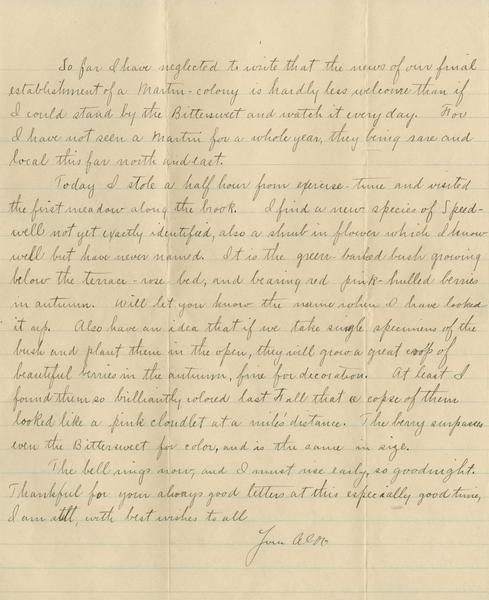 So far I have neglected to write that the news of our final
establishment of a Martin-colony is hardly less welcome than if
I could stand by the Bittersweet and watch it every day. For
I have not seen a Martin for a whole year, they being rare and
local this far north and east.
Today I stole a half hour from exercise-time and visited
the first meadow along the brook. I find a new species of Speed-
well not yet exactly identified, also a shrub in flower which I know
well but have never named. It is the green-barked bush growing
below the terrace-rose bed, and bearing red pink-hulled berries
in autumn. Will let you know the name when I have looked
it up. Also have an idea that if we take single specimens of the
bush and plant them in the open, they will grow a great crop of
beautiful berries in the autumn, fine for decoration. At least I
found them so brilliantly colored last Fall that a copse of them
looked like a pink cloudlet at a mile's distance. The berry surpasses
even the Bittersweet for color, and is the same in size.
The bell rings now, and I must rise early, so goodnight.
Thankful for your always good letters at this especially good time,
I am still, with best wishes to all
Your